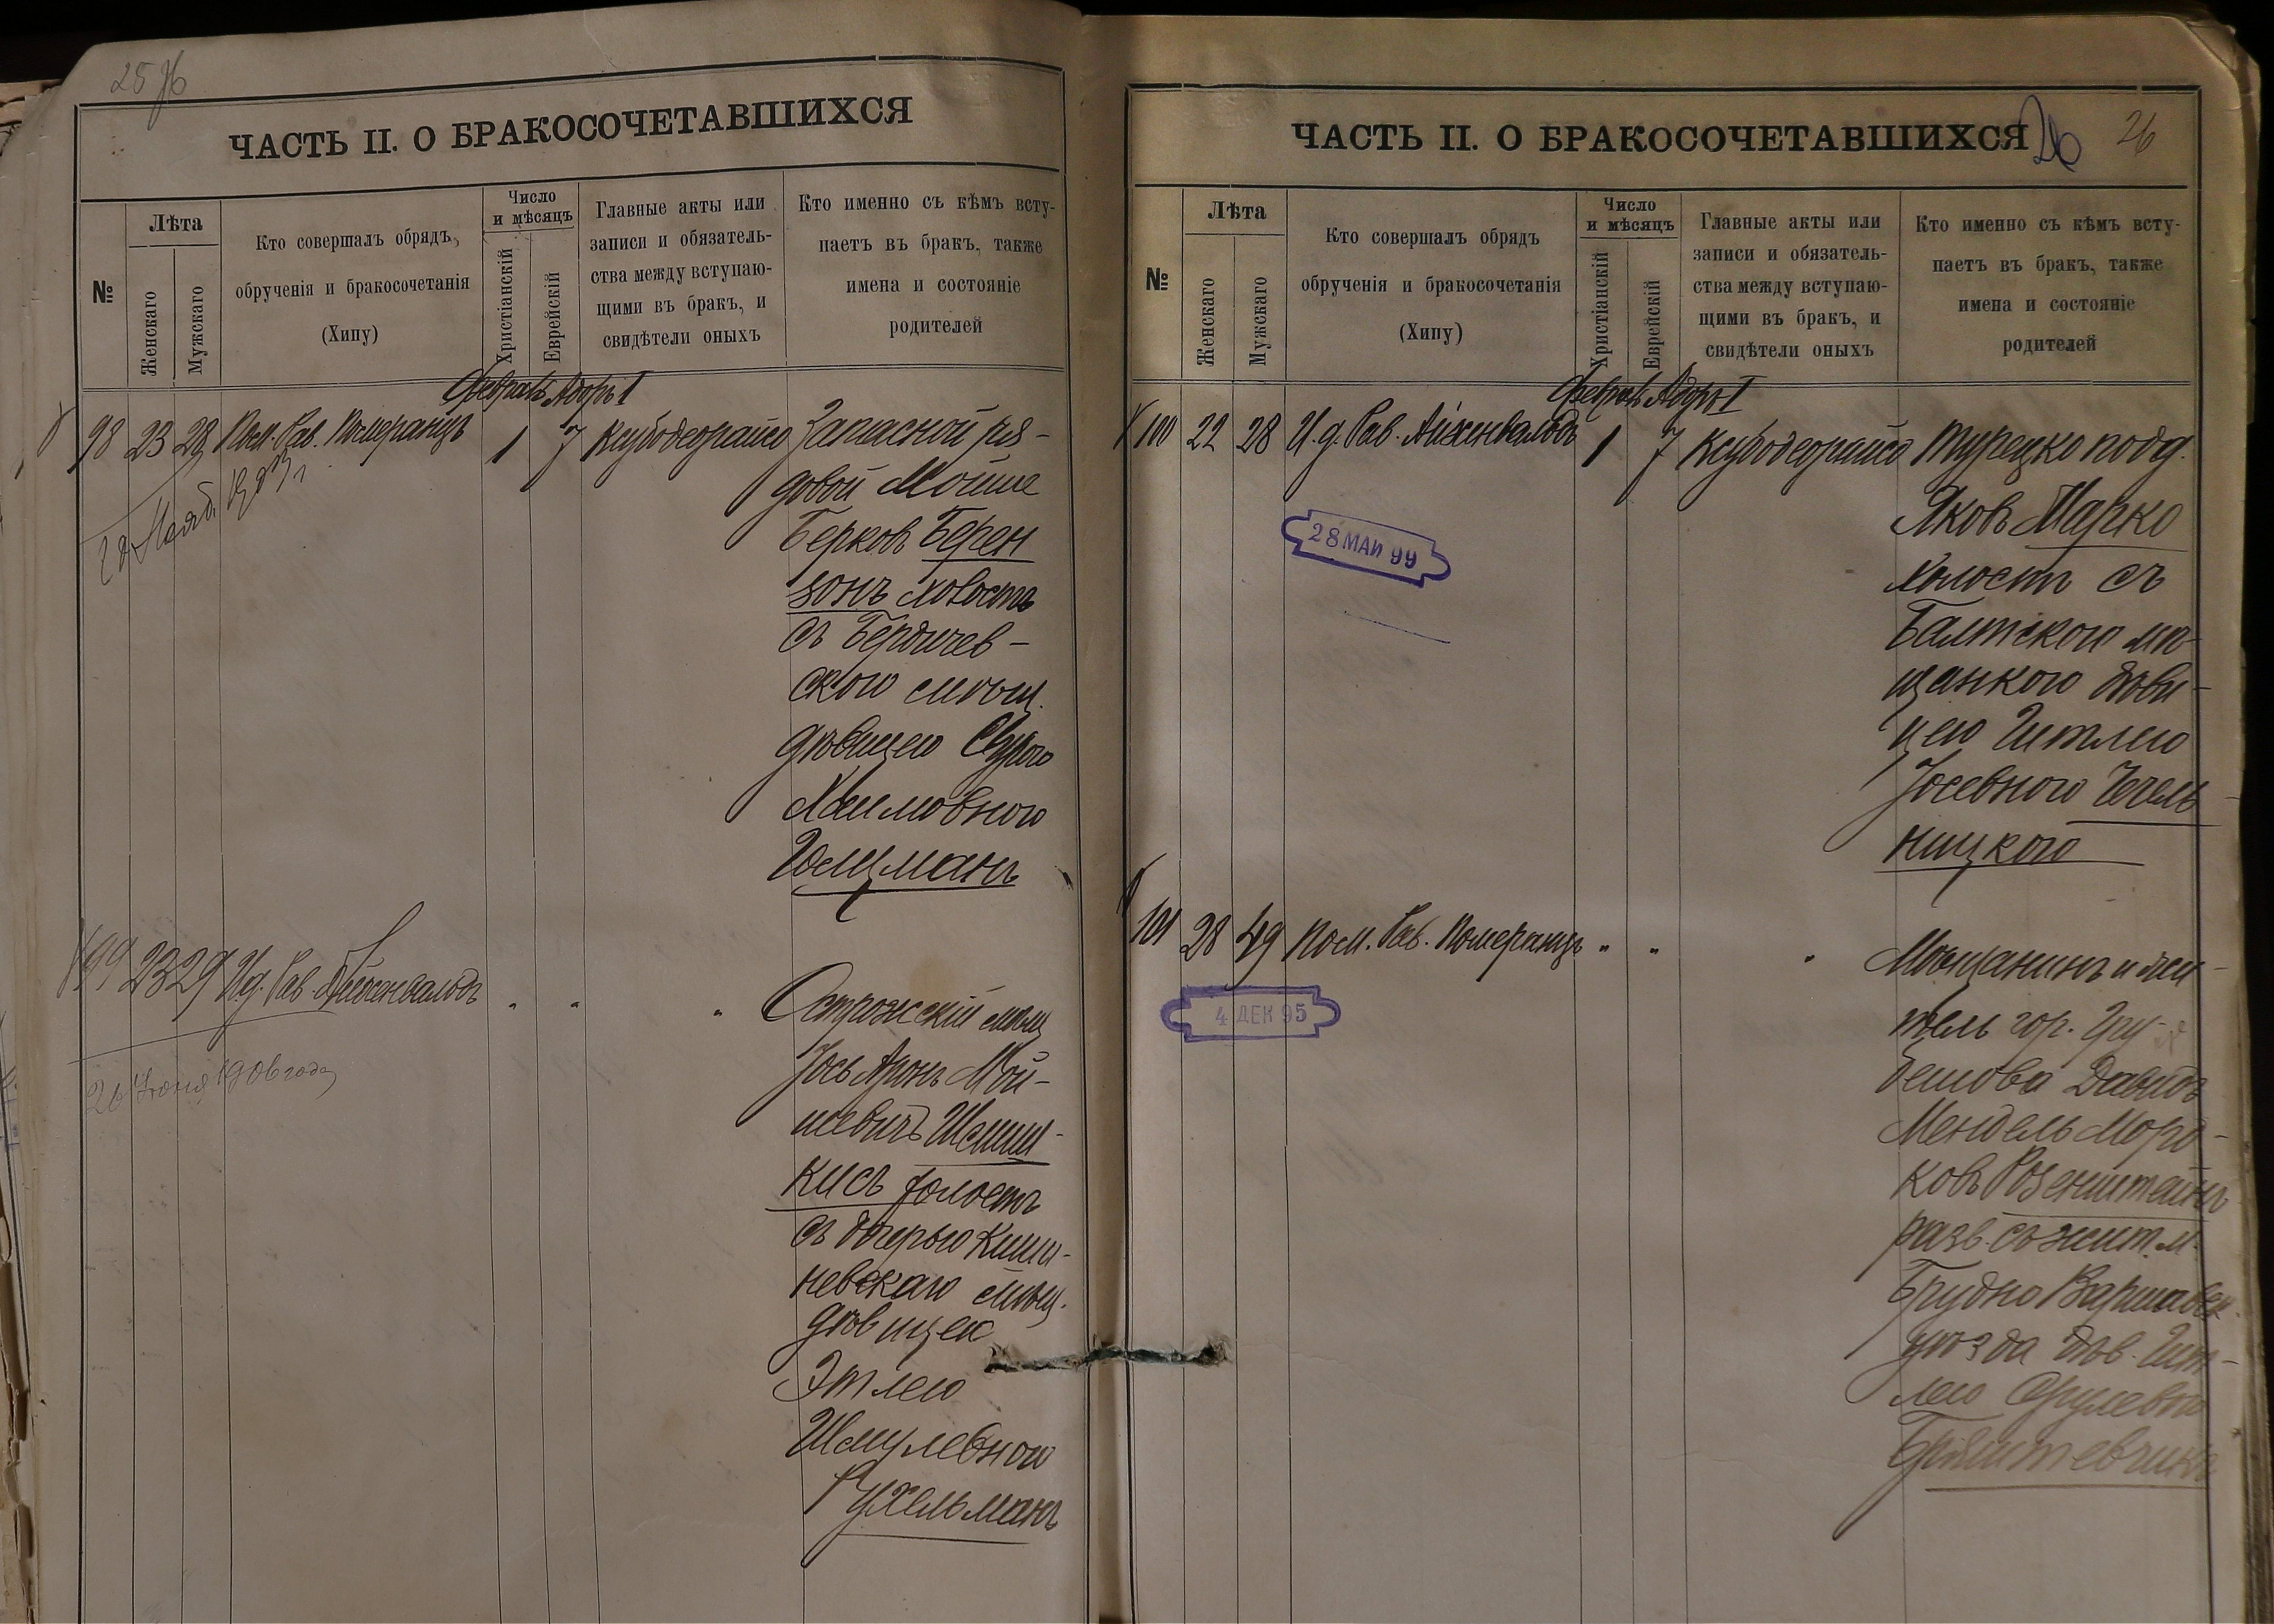 25 об
ЧАСТЬ II. О БРАКОСОЧЕТАВШИХСЯ
№
Лѣта
Женскаго
Мужскаго
Кто совершалъ обрядъ
обрученія и бракосочетанія
(Хипу)
Число
и мѣсяцъ
Христіанскій
Еврейскій
Главные акты или
записи и обязатель-
ства между вступаю-
щими въ бракъ, и
свидѣтели оныхъ
Кто именно съ кѣмъ всту-
паетъ въ бракъ, также
имена и состояніе
родителей
Февраль Адоръ I
98 23 28 Пом. Рав. Померанцъ 1 7 Ксубодеорайсо Запасной ря-
довой Мойше
Берковъ Берен
зонъ холостъ
съ Бердичев-
скою мѣщ.
дѣвицею Сурою
Хаимовною
Гольцманъ
99 23 29 И.д. Рав. Айхенвальдъ " " " Острожскій мѣщ
Іось Аронъ Мой-
шевичъ
кисъ холостъ
съ дочерью Киши-
невскаго мѣщ.
дѣвицею
Этлею
Шмулевною
Рухельманъ
26 Іюня 1906 года
26 26
ЧАСТЬ II. О БРАКОСОЧЕТАВШИХСЯ
№
Лѣта
Женскаго
Мужскаго
Кто совершалъ обрядъ
обрученія и бракосочетанія
(Хипу)
Число
и мѣсяцъ
Христіанскій
Еврейскій
Главные акты или
записи и обязатель-
ства между вступаю-
щими въ бракъ, и
свидѣтели оныхъ
Кто именно съ кѣмъ всту-
паетъ въ бракъ, также
имена и состояніе
родителей
Февраль Адоръ I
100 22 28 И.д. Рав. Айхенвальдъ 1 7 Ксубодеорайсо Турецко подд.
Яковъ Марко
холостъ съ
Балтскою мѣ-
щанкою дѣви-
цею Гитлею
Іосевною Чечель
ницкою
28 МАЙ 99
101 28 49 Пом. Рав. Померанцъ " " " Мѣщанинъ и жи-
тель гор. Гру-
бешова Давидъ
Мендель Морд-
ковъ Розенштейнъ
разв. съ жит. м.
Брудно Варшавск.
уѣзда дѣв. Гит-
лею Срулевною
4 ДЕК 95